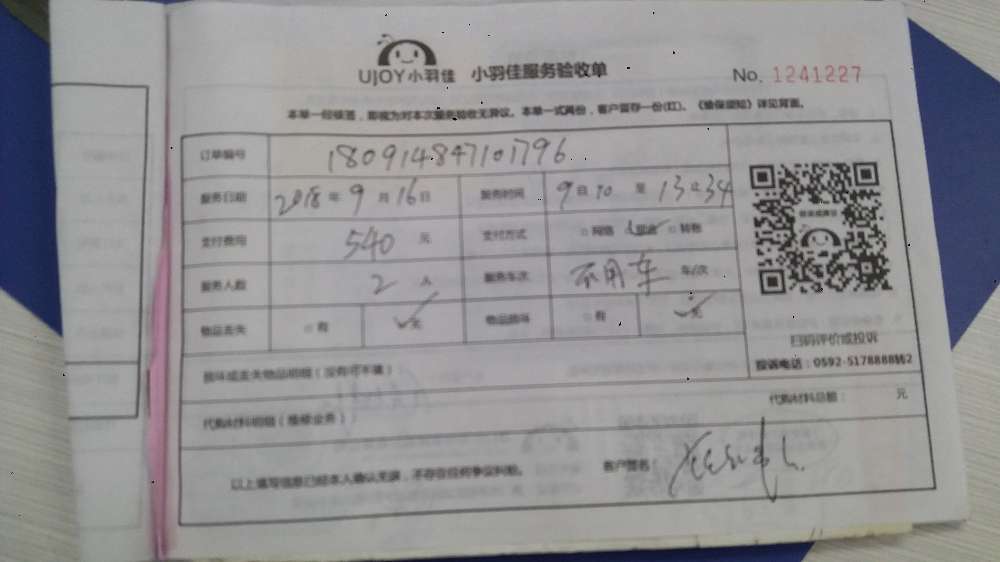 UJOY小羽佳 小羽佳服务验收单 No. 1241227
本单一经签签，即视为对本次服务验收无异议。本单一式两份，客户留存一份(红)、《验保须知》详见背面。
订单编号 180914847101796
服务日期 2018年9月16日 服务时间 9点10至13点34
支付费用 540元 支付方式 □网络 现金 □转账
服务人数 2人 服务车次 不用车 车/次
物品丢失 □有 ✓无 物品损坏 □有 ✓无
扫码评价或投诉
投诉电话：0592-5178888转2
损坏或丢失物品明细（没有可不填）
代购材料明细（维修业务） 代购材料总额： 元
以上填写信息已经本人确认无误，不存在任何争议纠纷。 客户签名：